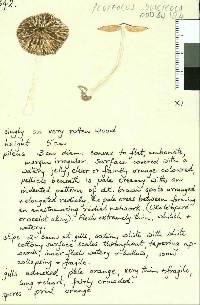 singly on very rotten wood
height 5 cm
pileus 3 cm diam. convex to flat, umbonate,
margin irregular. Surface covered with a
watery jelly, clear or faintly orange coloured,
pellicle beneath is pale creamy with an
indented pattern of dk. brown spots arranged
& elongated radially the pale areas between forming
an anastomosing raised network.
Flesh extremely thin, whitish &
watery.
stipe at gills, satiny, white with white
cottony surface scales throughout, tapering
flesh watery
collapsing & fragile.
gills adnexed, pale orange, very thin & fragile,
fairly crowded.
spores print orange